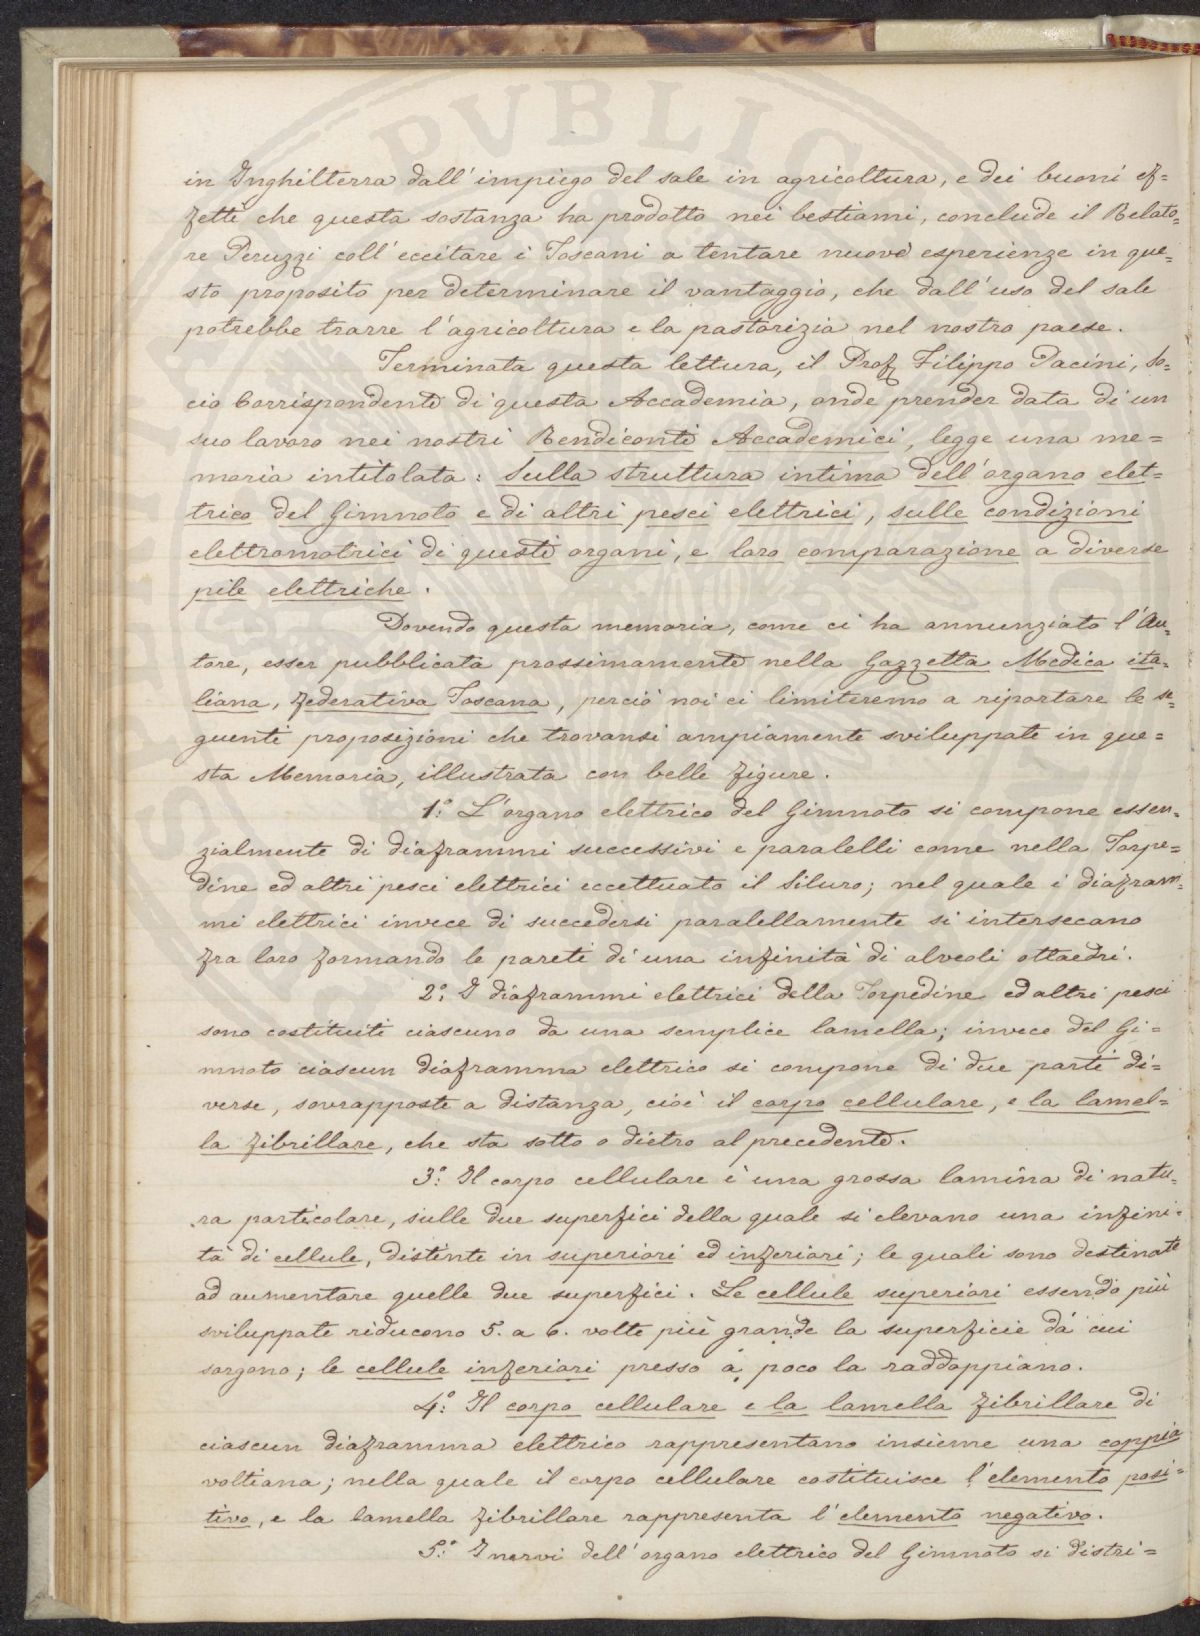 in Inghilterra dall'impiego del sale in agricoltura, e dei buoni ef=
fetti che questa sostanza ha prodotto nei bestiami, conclude il Relato=
re Peruzzi coll'eccitare i Toscani a tentare nuove esperienze in que=
sto proposito per determinare il vantaggio, che dall'uso del sale
potrebbe trarre l'agricoltura e la pastorizia nel nostro paese.
Terminata questa lettura, il Prof Filippo Pacini, So=
cio Corrispondente di questa Accademia, onde prender data di un
suo lavoro nei nostri Rendiconti Accademici, legge una me=
moria intitolata: Sulla struttura intima dell'organo elet=
trico del Gimnoto e di altri pesci elettrici, sulle condizioni
elettromotrici di questi organi, e loro comparazione a diverse
pile elettriche.
Dovendo questa memoria, come ci ha annunziato l'Au=
tore, esser pubblicata prossimamente nella Gazzetta Medica ita=
liana, federativa Toscana, perciò noi ci limiteremo a riportare le se=
guenti proposizioni che trovansi ampiamente sviluppate in que=
sta Memoria, illustrata con belle figure.
1.º L'organo elettrico del Gimnoto si compone essen=
zialmente di diaframmi successivi e paralelli come nella Torpe=
dine ed altri pesci elettrici eccettuato il Siluro; nel quale i diafram=
mi elettrici invece di succedersi paralellamente si intersecano
fra loro formando le pareti di una infinità di alveoli ottaedri.
2.º I diaframmi elettrici della Torpedine ed altri pesci
sono costituiti ciascuno da una semplice lamella; invece del Gi=
mnoto ciascun diaframma elettrico si compone di due parti di=
verse, sovrapposte a distanza, cioè il corpo cellulare, e la lamel=
la fibrillare, che sta sotto o dietro al precedente.
3.º Il corpo cellulare è una grossa lamina di natu=
ra particolare, sulle due superfici della quale si elevano una infini=
tà di cellule, distinte in superiori ed inferiori; le quali sono destinate
ad aumentare quelle due superfici. Le cellule superiori essendo più
sviluppate riducono 5. a 6. volte più grande la superficie da cui
sorgono; le cellule inferiori presso a poco la raddoppiano.
4.º Il corpo cellulare e la lamella fibrillare di
ciascun diaframma elettrico rappresentano insieme una coppia
voltiana; nella quale il corpo cellulare costituisce l'elemento posi=
tivo, e la lamella fibrillare rappresenta l'elemento negativo.
5.º I nervi dell'organo elettrico del Gimnoto si distri=